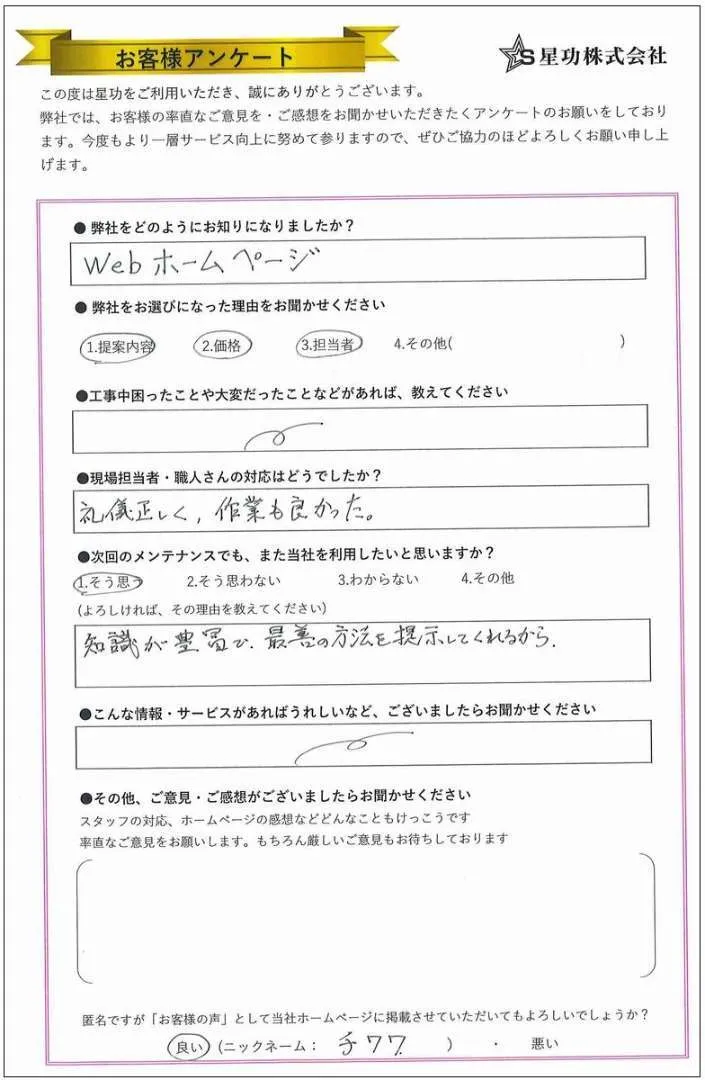 お客様アンケート
星功株式会社
この度は星功をご利用いただき、誠にありがとうございます。
弊社では、お客様の率直なご意見を・ご感想をお聞かせいただきたくアンケートのお願いをしており
ます。今度もより一層サービス向上に努めて参りますので、ぜひご協力のほどよろしくお願い申し上
げます。
● 弊社をどのようにお知りになりましたか？
Webホームページ
● 弊社をお選びになった理由をお聞かせください
1.提案内容 2.価格 3.担当者 4.その他( )
●工事中困ったことや大変だったことなどがあれば、教えてください
●現場担当者・職人さんの対応はどうでしたか？
礼儀正しく，作業も良かった。
●次回のメンテナンスでも、また当社を利用したいと思いますか？
1.そう思う 2.そう思わない 3.わからない 4.その他
(よろしければ、その理由を教えてください)
知識が豊冨で、最善の方法を提示してくれるから.
●こんな情報・サービスがあればうれしいなど、ございましたらお聞かせください
●その他、ご意見・ご感想がございましたらお聞かせください
スタッフの対応、ホームページの感想などどんなこともけっこうです
率直なご意見をお願いします。もちろん厳しいご意見もお待ちしております
匿名ですが「お客様の声」として当社ホームページに掲載させていただいてもよろしいでしょうか？
良い (ニックネーム： チワワ ) ・ 悪い